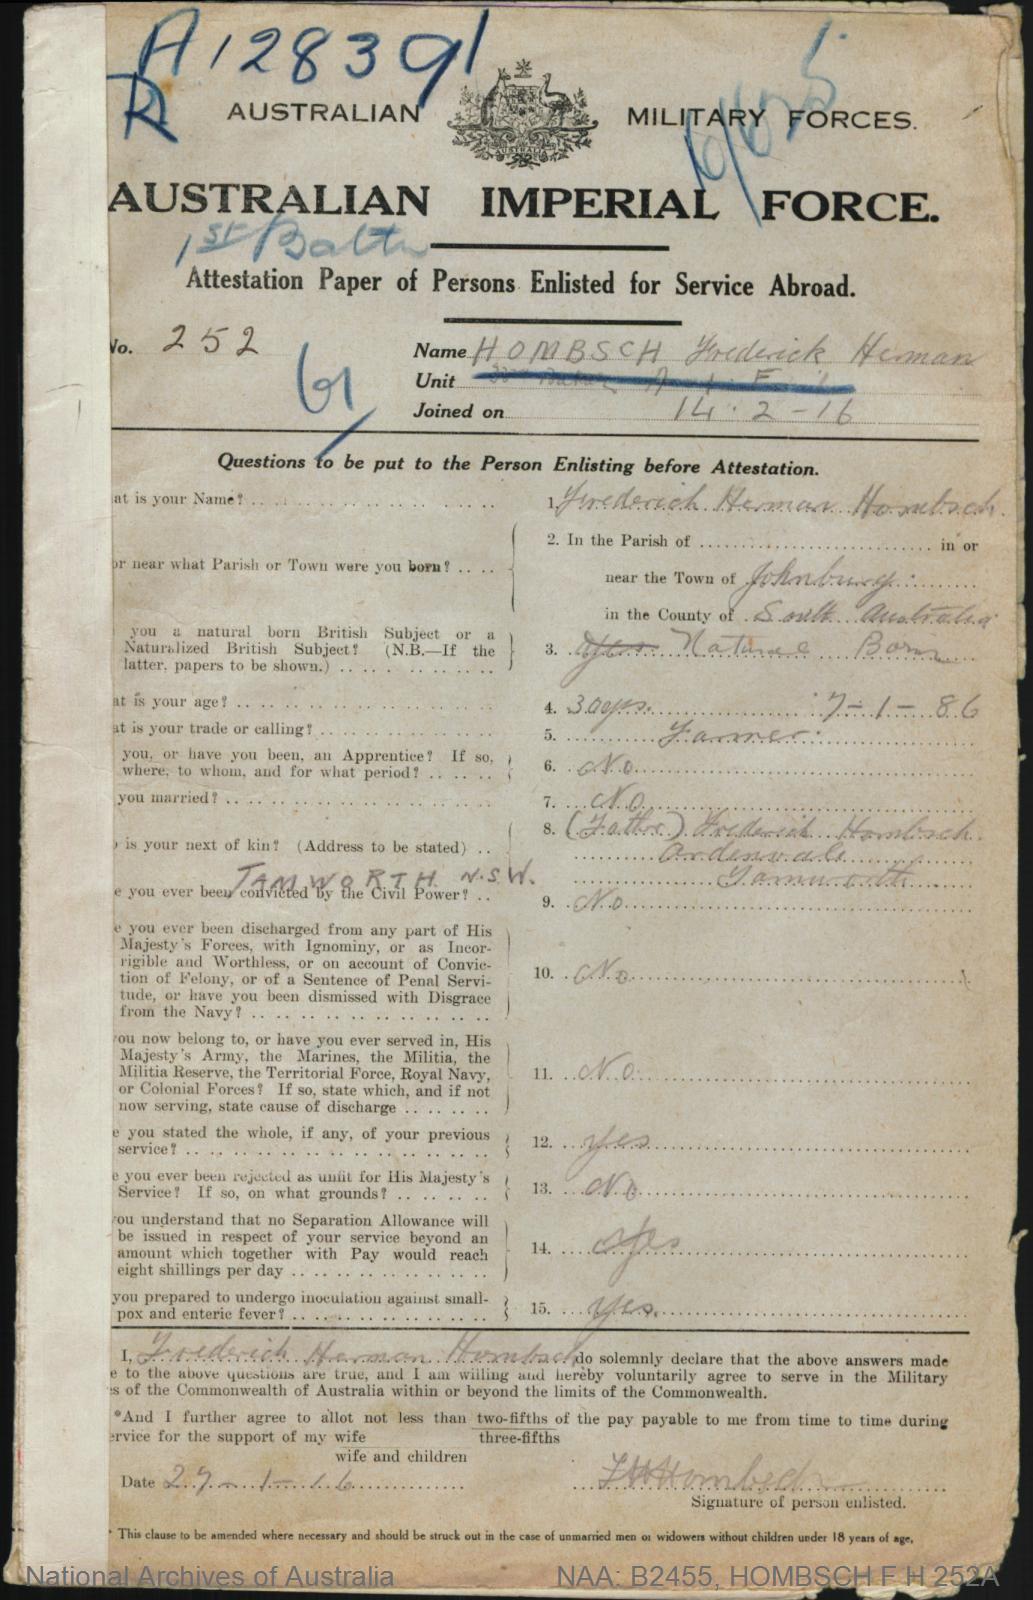 A12839
R
AUSTRALIAN MILITARY FORCES.
AUSTRALIA
AUSTRALIAN IMPERIAL FORCE.
1st Battn
Attestation Paper of Persons Enlisted for Service Abroad.
No. 252 Name HOMBSCH Frederick Herman
Unit
Joined on 14.2-16
Questions to be put to the Person Enlisting before Attestation.
at is your Name? 1. Frederick Herman Hombsch
2. In the Parish of in or
or near what Parish or Town were you born? near the Town of Johnburg
in the County of South Australia
you a natural born British Subject or a
Naturalized British Subject? (N.B.—If the 3. Yes Natural Born
latter, papers to be shown.)
at is your age? 4. 30 yrs. 7-1-86
at is your trade or calling? 5. Farmer
you, or have you been, an Apprentice? If so,
where, to whom, and for what period? 6. No
you married? 7. No
8. (Father) Frederick Hombsch
is your next of kin? (Address to be stated) Ardenvale
TAMWORTH N.S.W. Tamworth
e you ever been convicted by the Civil Power? 9. No
e you ever been discharged from any part of His
Majesty's Forces, with Ignominy, or as Incor-
rigible and Worthless, or on account of Convic-
tion of Felony, or of a Sentence of Penal Servi- 10. No
tude, or have you been dismissed with Disgrace
from the Navy?
you now belong to, or have you ever served in, His
Majesty's Army, the Marines, the Militia, the
Militia Reserve, the Territorial Force, Royal Navy, 11. No
or Colonial Forces? If so, state which, and if not
now serving, state cause of discharge
e you stated the whole, if any, of your previous
service? 12. Yes
e you ever been rejected as unfit for His Majesty's
Service? If so, on what grounds? 13. No
you understand that no Separation Allowance will
be issued in respect of your service beyond an
amount which together with Pay would reach 14. Yes
eight shillings per day
you prepared to undergo inoculation against small-
pox and enteric fever? 15. Yes.
I, Frederick Herman Hombsch do solemnly declare that the above answers made
e to the above questions are true, and I am willing and hereby voluntarily agree to serve in the Military
s of the Commonwealth of Australia within or beyond the limits of the Commonwealth.
*And I further agree to allot not less than two-fifths of the pay payable to me from time to time during
ervice for the support of my wife three-fifths
wife and children
Date 27-1-16 F H Hombsch
Signature of person enlisted.
* This clause to be amended where necessary and should be struck out in the case of unmarried men or widowers without children under 18 years of age,
National Archives of Australia NAA: B2455, HOMBSCH F H 252A